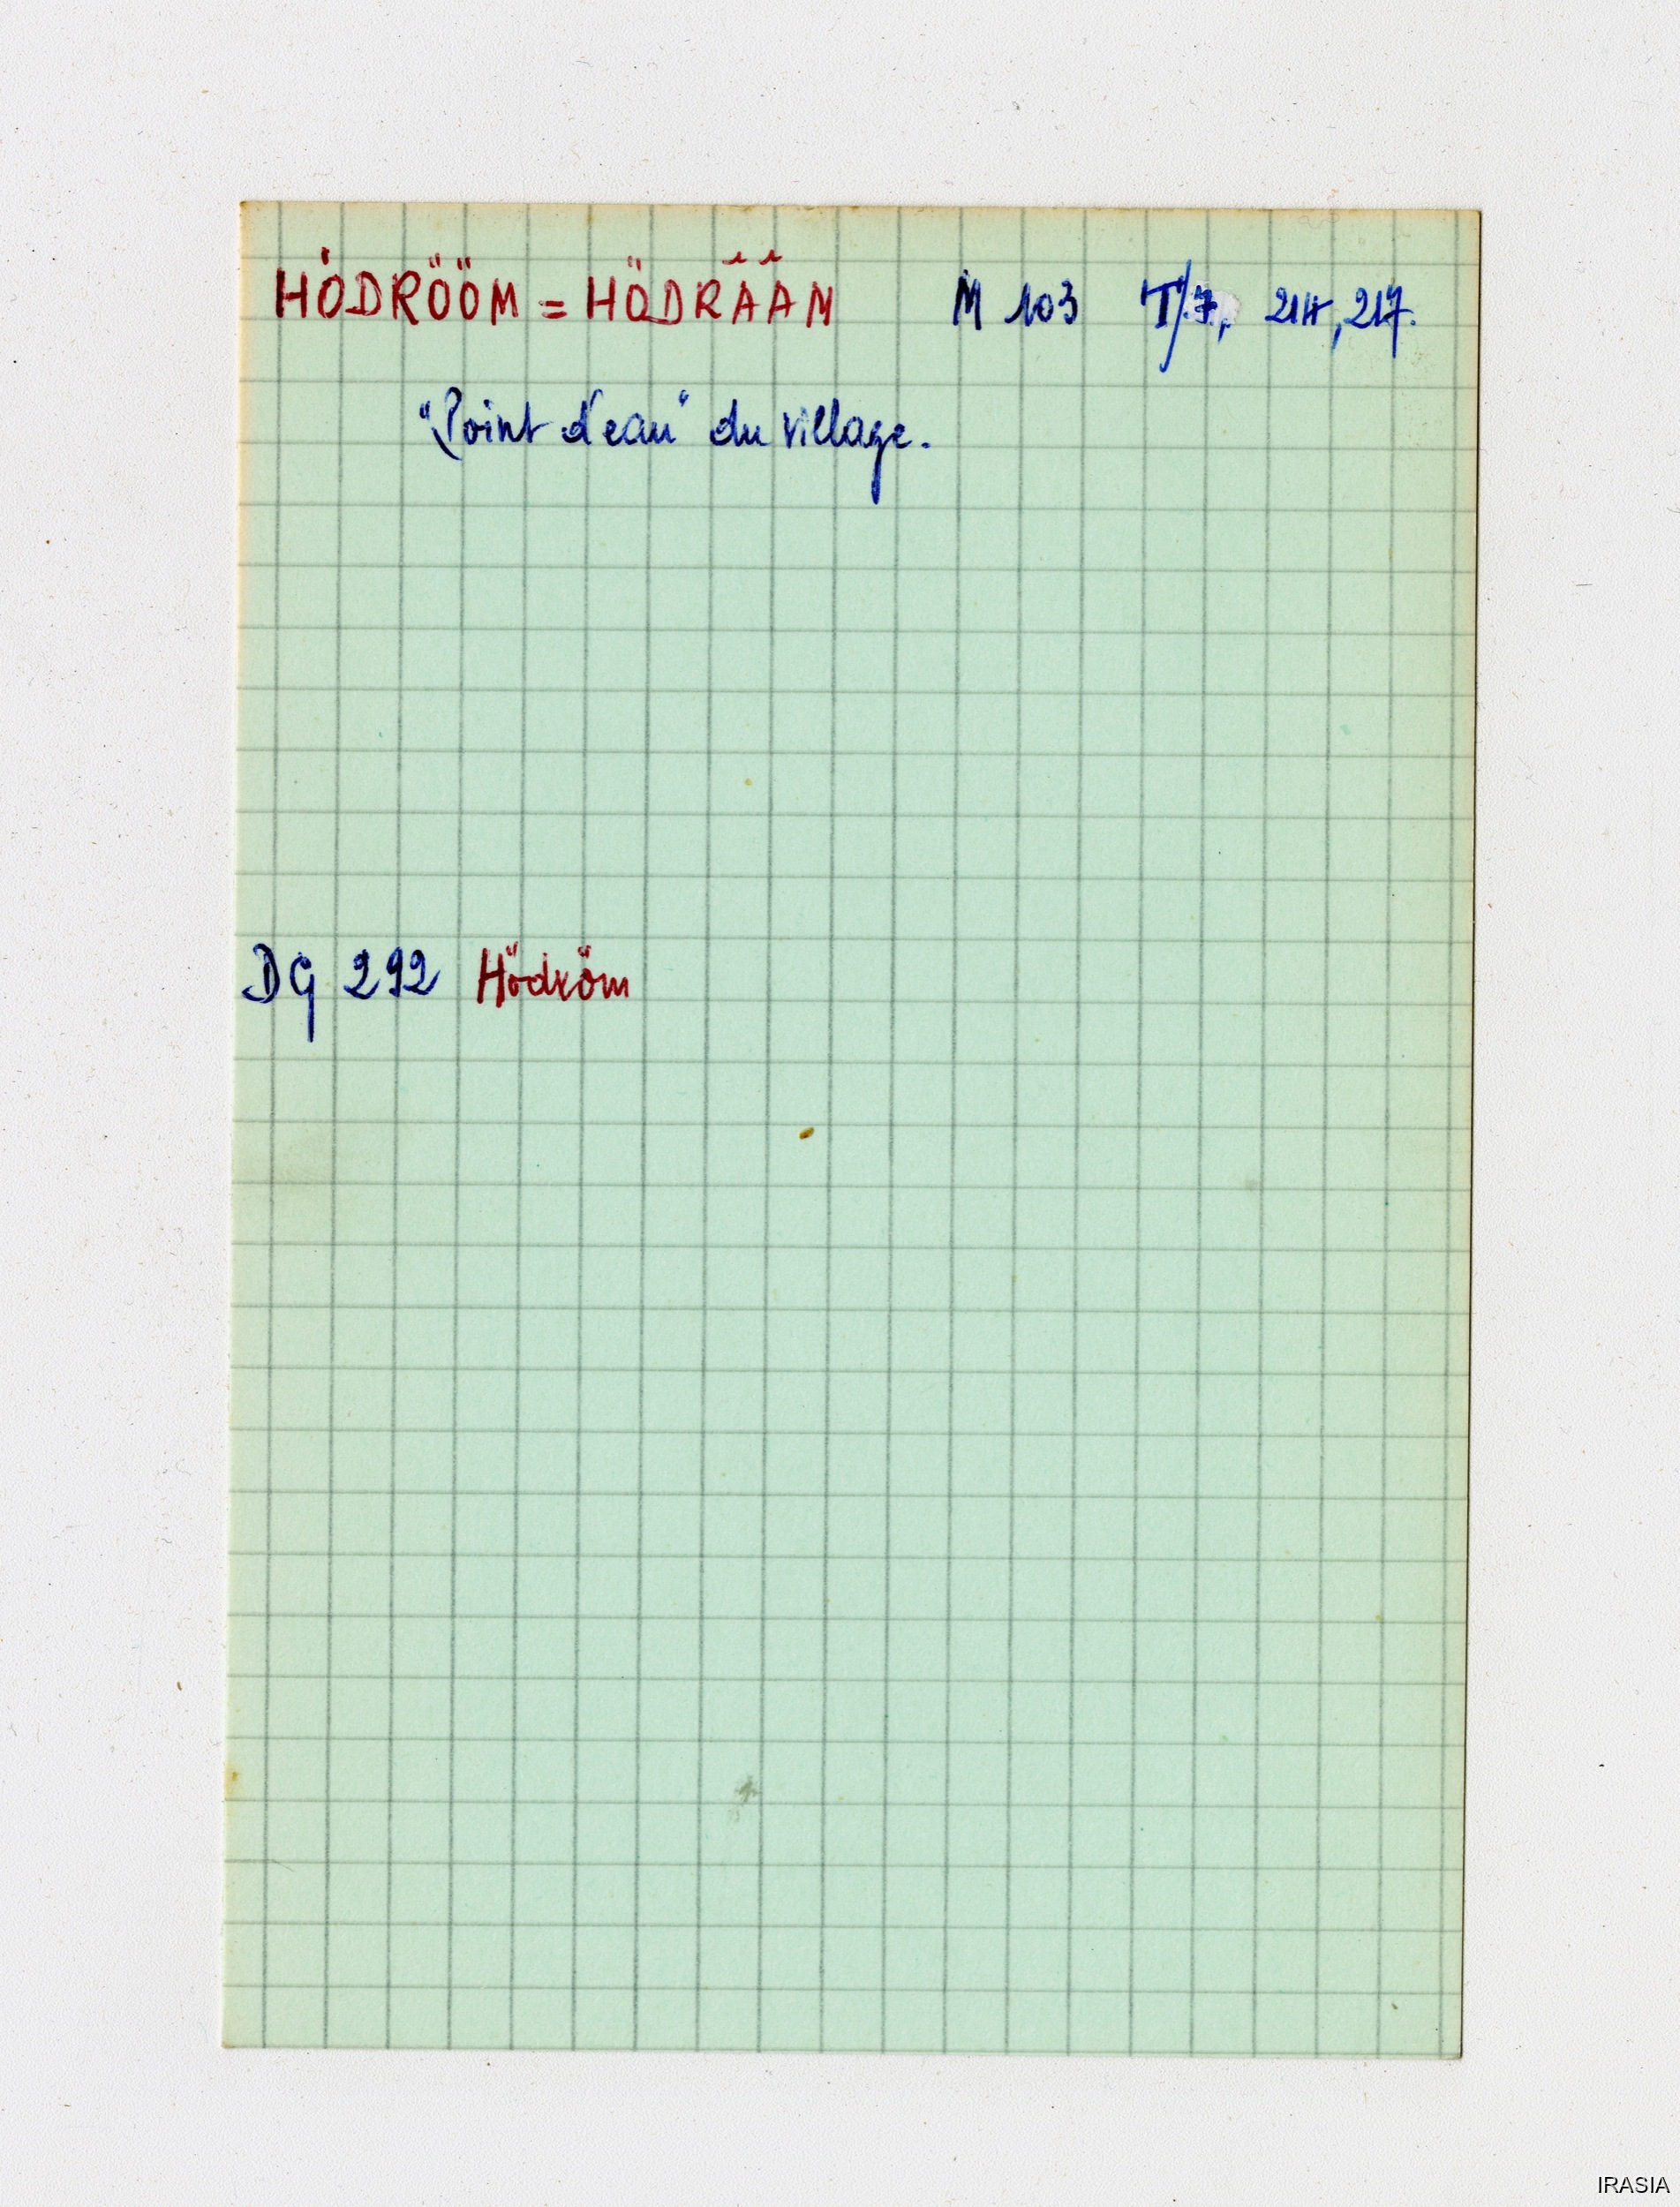 HÖDRÖÖM = HÖDRÂÂM M 103 T/7, 214, 217.
"Point d'eau" du village.
DG 292 Hödröm
IRASIA